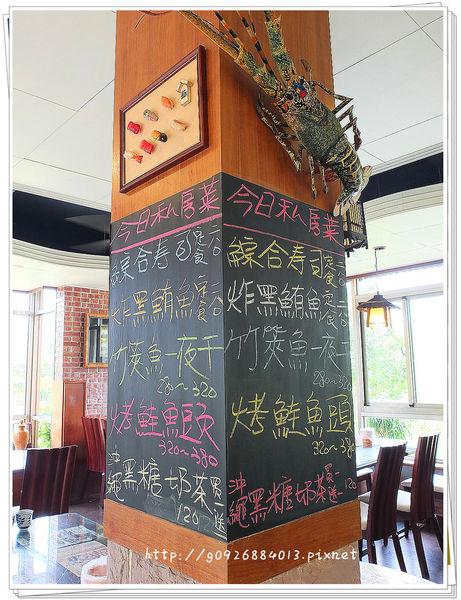 今日私房菜
綜合壽司定食二八〇
炸黑鮪魚定食二八〇
竹筴魚一夜干
280~320
烤鮭魚頭
320~380
沖繩黑糖奶茶買一送一
120
今日私房菜
綜合壽司定食
炸黑鮪魚定食
竹筴魚一夜干
280~320
烤鮭魚頭
320~380
沖繩黑糖奶茶
120
http://g0926884013.pixnet